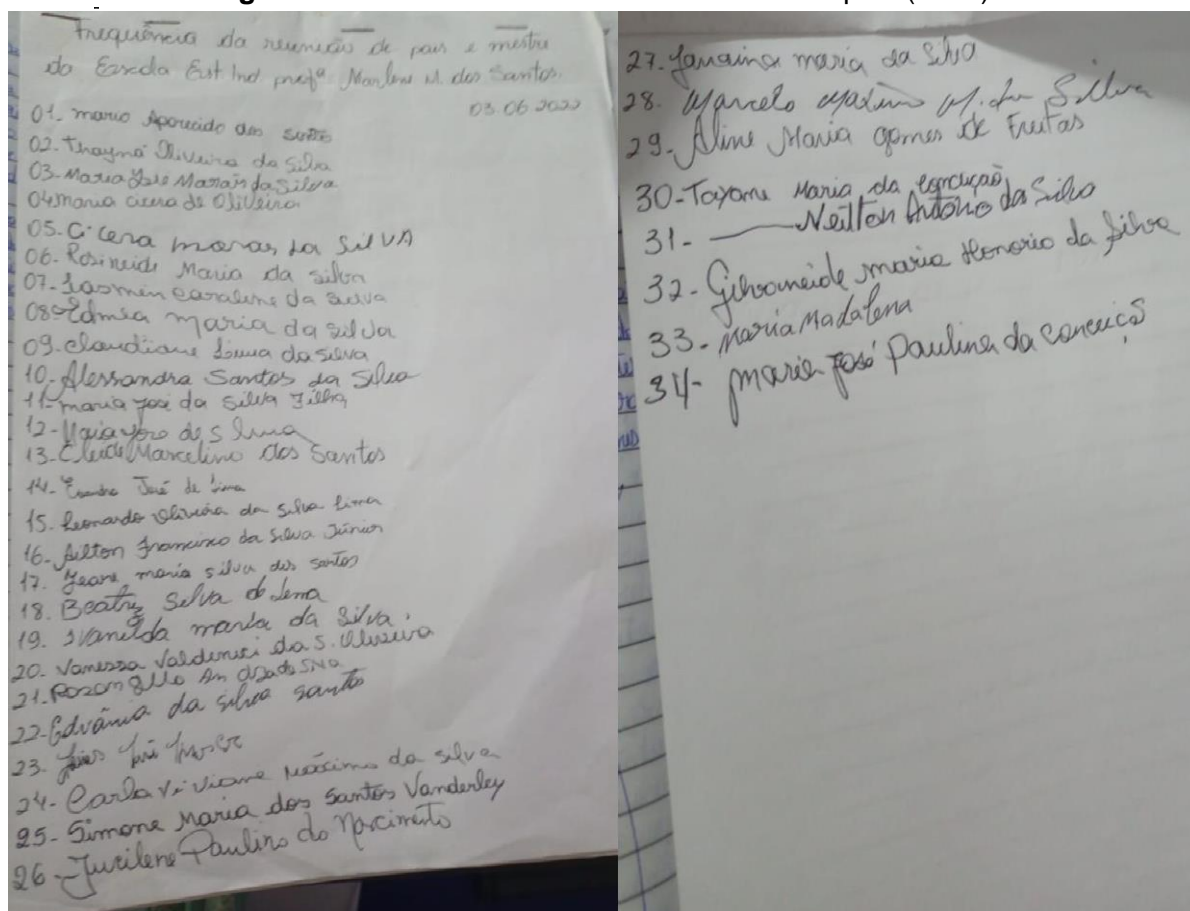 Frequência da reunião de pais e mestre
da Escola Est Ind profª. Marlene M. dos Santos.
03.06.2022
01- mario Aparecido dos santos
02- Thayná Oliveira da Silva
03- Maria José Morais da Silva
04 maria cicera de Oliveira
05- Cicera morais da SilVA
06- Rosineide Maria da silva
07- Iasmin Caroline da Silva
08- Edmea maria da silva
09- claudiane Lima da silva
10- Alessandra Santos da Silva
11- maria José da Silva Filha
12- de S Lima
13- Cleide Marcelino dos Santos
14- José de Lima
15- Leonardo Oliveira da Silva Lima
16- Ailton Francisco da Silva Júnior
17. Jeane maria silva dos santos
18. Beatriz Silva de Lima
19. Ivanilda maria da Silva.
20- Vanessa Valdenici da S. Oliveira
21-
22- Edvânia da silva santos
23.
24- Carla Viviane Máximo da silva
25- Simone Maria dos Santos Vanderley
26- Jucilene Paulino do Nascimento
27- Janaina maria da Silva
28. Marcelo M. da Silva
29- Aline Maria gomes de Freitas
30- Tayane Maria da
31- Neilton Antonio da Silva
32- Gilvaneide maria Honorio da Silva
33- Maria Madalena
34- maria José Paulina da Conceiçõ